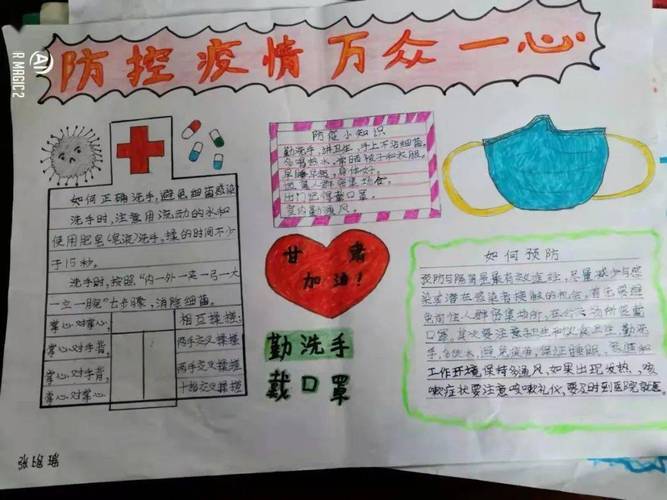 防控疫情万众一心
AI
R MAGIC2
如何正确洗手，避免细菌感染
洗手时，注意用流动的水和
使用肥皂(皂液)洗手，揉的时间不少
于15秒。
洗手时，按照"内一外一夹一弓一大
一立一腕"七步骤，消除细菌。
掌心对掌心 相互揉搓
掌心对手背 两手交叉揉搓
掌心对手背 两手交叉揉搓
掌心对掌心 十指交叉揉搓
防疫小知识
勤洗手，讲卫生，手上不沾细菌。
多喝热水，常晒被子和衣服。
早睡早起，身体好。
远离人群密集场合，
出门记得戴口罩。
室内勤通风。
甘肃
加油！
勤洗手
戴口罩
如何预防
预防与隔离是最有效途径，尽量减少与感
染或潜在感染者接触的机会，
口罩，其次要注意手卫生和
工作环境，保持多通风，如果出现发热、咳
嗽症状要注意咳嗽礼仪，要及时到医院就医。